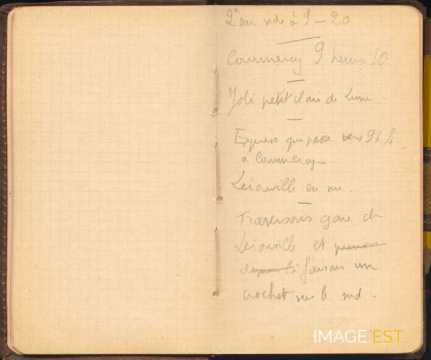 2e au vide à 9 - 20
Commercy 9 heures 10
Joli petit clair de lune
Express qui passe vers 9h
à Commercy
Lérouville en vue.
Traversons gare de
Lérouville et
faisons un
crochet sur le sud.
IMAGE'EST